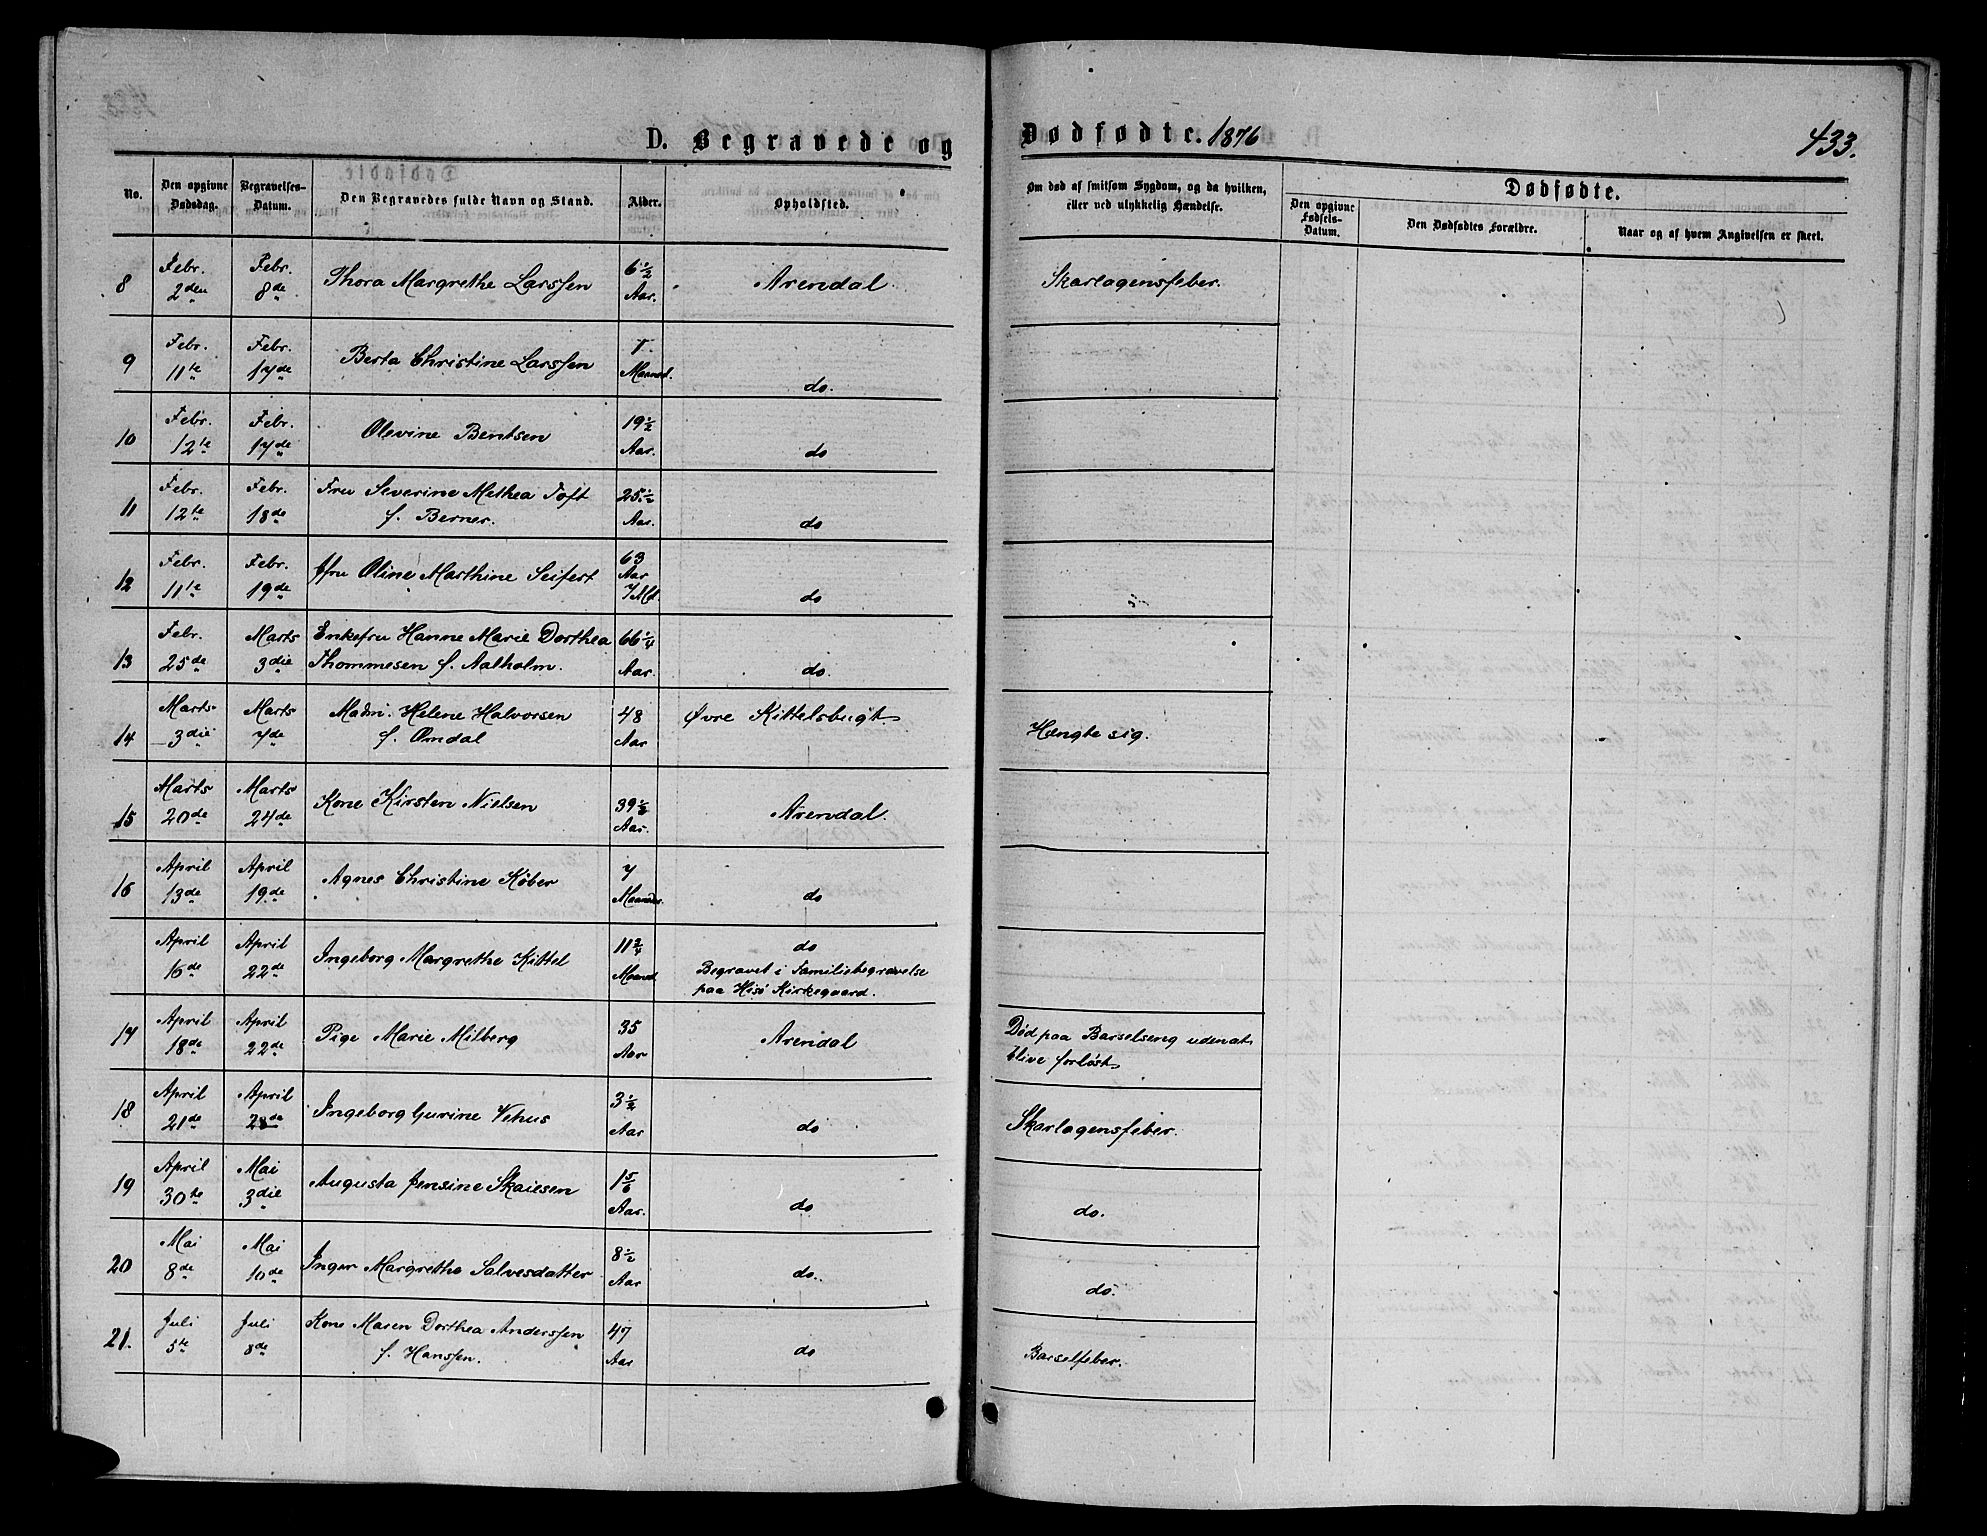 D. Begravede og Dødfødte. 1876 433.
No. Den opgivne Dødsdag. Begravelses-Datum. Den Begravedes fulde Navn og Stand. Alder. Opholdsted. Om død af smitsom Sygdom, og da hvilken, eller ved ulykkelig Hændelse. Dødfødte.
Den opgivne Fødsels-Datum. Den Dødfødtes Forældre. Naar og af hvem Angivelsen er skeet.
8 Febr. 2den Febr. 8de Thora Margrethe Larssen 6 1/2 Aar. Arendal. Skarlagensfeber.
9 Febr. 11te Febr. 17de Berta Christine Larssen Maaned. do.
10 Febr. 12te Febr. 17de Olevine Bentsen 19 1/2 Aar. do
11 Febr. 12te Febr. 18de Fru Severine Methea Toft f. Berner. 25 1/2 Aar. do
12 Febr. 11te Febr. 19de Jfru Oline Marthine Seifert 63 Aar 7 Md. do
13 Febr. 25de Marts 3die Enkefru Hanne Marie Dorthea Thommesen f. Aalholm. 66 1/4 Aar. do.
14 Marts 3die Marts 7de Madm. Helene Halvorsen f. Omdal 48 Aar Øvre Kittelsbugt Hængte sig.
15 Marts 20de Marts 24de Kone Kirsten Nielsen 39 1/2 Aar. Arendal.
16 April 13de April 19de Agnes Christine Køber 7 Maaneder. do
April 16de April 22de Ingeborg Margrethe Kittel 11 3/4 Maaned do
Begravet i Familiebegravelse
paa Hisø Kirkegaard.
17 April 18de April 22de Pige Marie Milberg 35 Aar Arendal Død paa Barselseng uden at
blive forløst
18 April 21de April 28de Ingeborg Gurine Vehus 3 1/2 Aar do Skarlagensfeber.
19 April 30te Mai 3die Augusta Jensine Skaiesen 1 5/6 Aar. do do.
20 Mai 8de Mai 10de Inger Margrethe Salvesdatter 8 1/2 Aar do. do.
21. Juli 5te Juli 8de Kone Maren Dorthea Anderssen f. Hanssen. 47 Aar do Barselfeber.